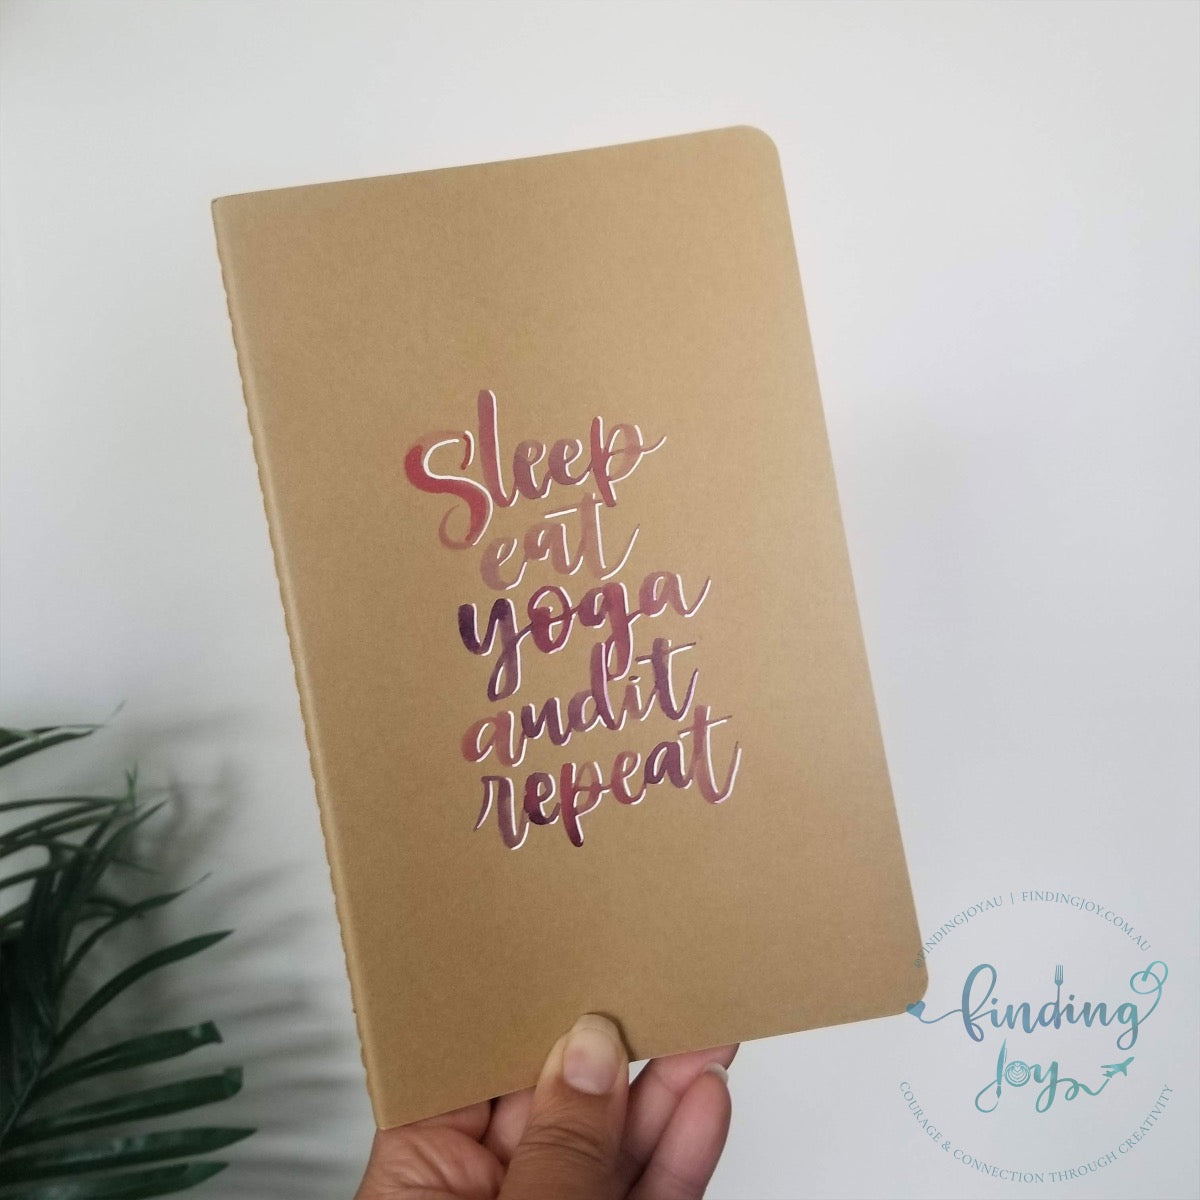 Sleep
eat
yoga
audit
repeat
@FINDINGJOYAU | FINDINGJOY.COM.AU
finding
Joy
COURAGE & CONNECTION THROUGH CREATIVITY